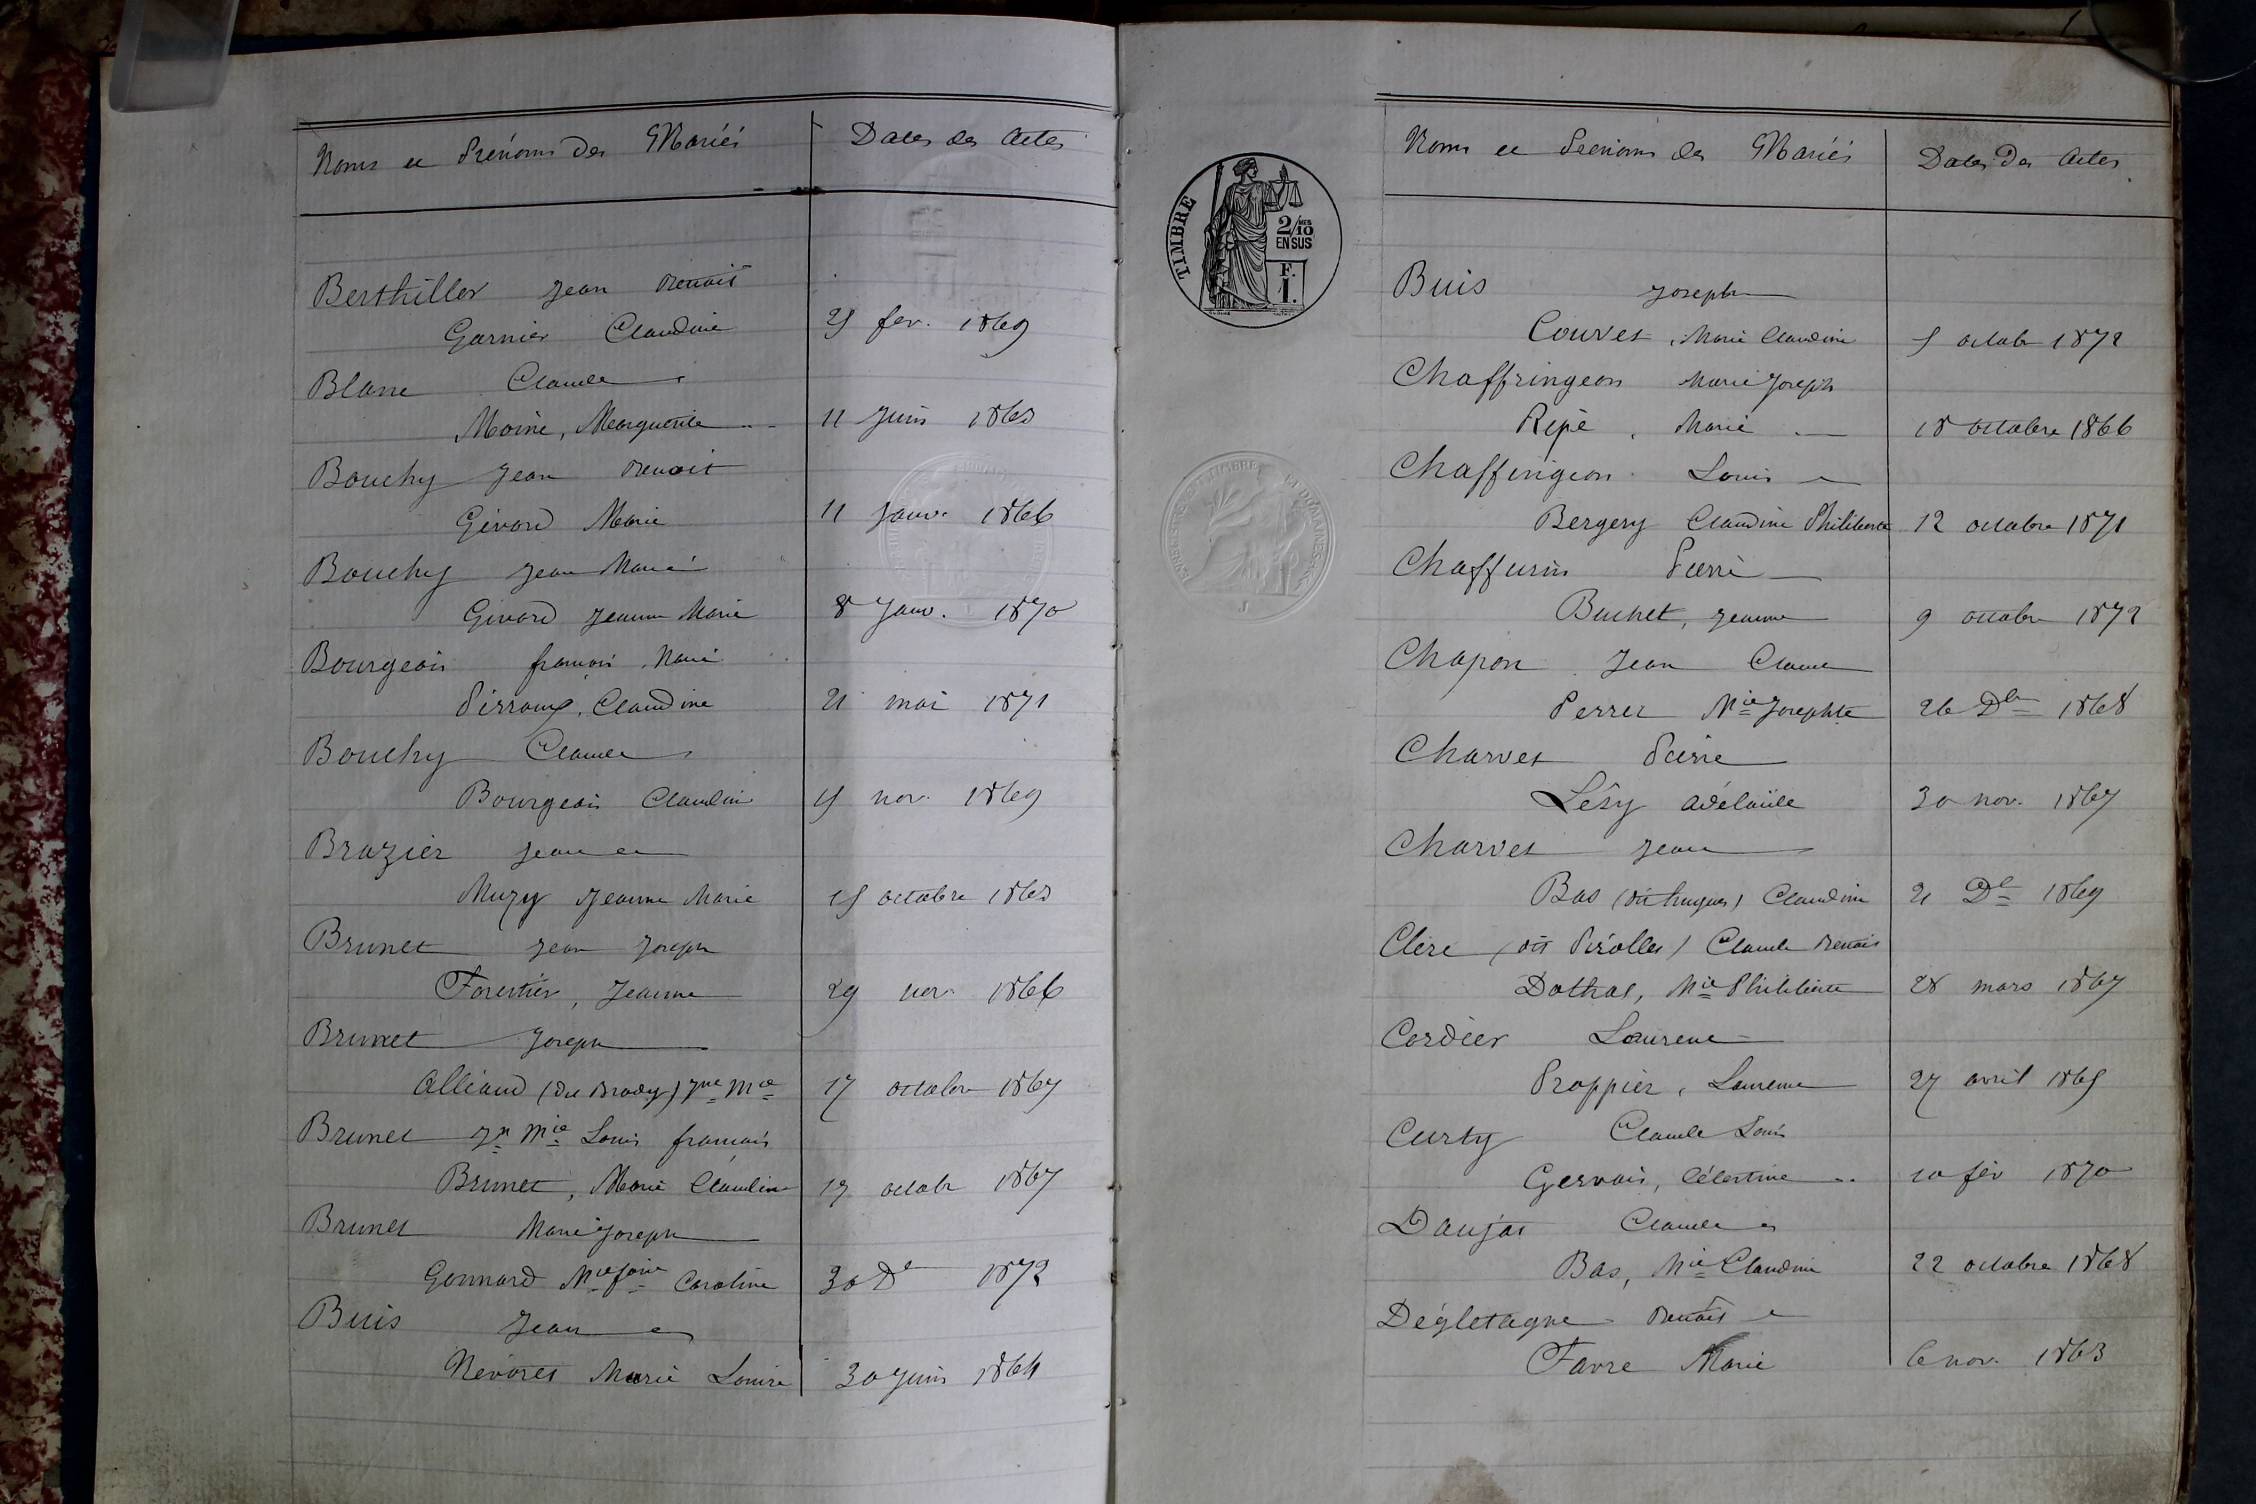 Noms et Prénoms des Mariés
Dates des Actes
Berthiller Jean Benoit
Garnier Claudine 25 fev. 1869
Blanc Claude
Moine, Marguerite 11 Juin 1863
Bouchy Jean Benoit
Girard Marie 11 Janv. 1866
Bouchy Jean Marie
Girard Jeanne Marie 8 Janv. 1870
Bourgeois françois Marie
Claudine 21 mai 1871
Bouchy Claude
Bourgeois Claudine 15 nov. 1869
Brazier Jean
Muzy Jeanne Marie 15 octobre 1863
Brunet Jean Joseph
Forestier, Jeanne 29 nov. 1866
Brunet Joseph
Alliaud (dit Brady) Jne Mie 17 octobre 1867
Brunet Jn Mie Louis françois
Brunet, Marie Claudine 17 octobr 1867
Brunet Marie Joseph
Gonnard Mie Caroline 30 De 1872
Buis Jean
Nevoret Marie Louise 30 Juin 1864
TIMBRE
2/10 MES
EN SUS
F.
1.
Noms et Prénoms des Mariés
Dates Des Actes
Buis Joseph
Couvet, Marie Claudine 5 octobr 1872
Chaffringeon Marie Joseph
Ripé, Marie 18 octobre 1866
Chaffringeon Louis
Bergery Claudine Philiberte 12 octobre 1871
Chaffurin Pierre
Buchet, Jeanne 9 octobre 1872
Chapon Jean Claude
Perret Mie Josephte 26 Dbr 1868
Charvet Pierre
Lésy Adélaïde 30 nov. 1867
Charvet Jean
Bas (dit hugues) Claudine 21 De 1869
Clerc (dit Pirolles) Claude Benoit
Dothal, Mie Philiberte 28 mars 1867
Cordier Laurent
Proppier, Laurence 27 avril 1865
Curty Claude Louis
Gervais, Célestine 10 fév 1870
Daujat Claude
Bas, Mie Claudine 22 octobre 1868
Dégletagne Benoit
Favre Marie 6 nov. 1863